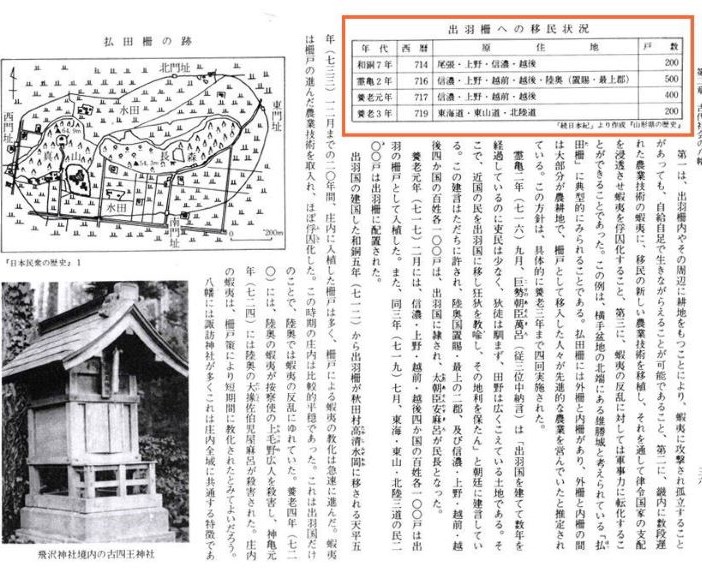 出羽柵への移民状況
年代 西暦 原住地 戸数
和銅7年 714 尾張・上野・信濃・越後 200
霊亀2年 716 信濃・上野・越前・越後・陸奥（置賜・最上郡） 500
養老元年 717 信濃・上野・越前・越後 400
養老3年 719 東海道・東山道・北陸道 200
『続日本紀』より作成『山形県の歴史』
第一は、出羽柵内やその周辺に耕地をもつことにより、蝦夷に攻撃され孤立すること
があっても、自給自足で生きながらえることが可能であること、第二に、畿内に数段遅
れた農業技術の蝦夷に、移民の新しい農業技術を移植し、それを通して律令国家の支配
を浸透させ蝦夷を俘囚化すること、第三に、蝦夷の反乱に対しては軍事力に転化するこ
とができることであった。この例は、横手盆地の北端にある雄勝城と考えられている「払
田柵」に典型的にみられることである。払田柵には外柵と内柵があり、外柵と内柵の間
は大部分が農耕地で、柵戸として移入した人々が先進的な農業を営んでいたと推定され
ている。この方針は、具体的に養老三年まで四回実施された。
霊亀二年（七一六）九月、巨勢朝臣萬呂（従三位中納言）は「出羽国を建てて数年を
経過しているのに吏民は少なく、狄徒は馴まず、田野は広くこえている土地である。そ
こで、近国の民を出羽国に移し狂狄を教喩し、その地利を保たん」と朝廷に建言してい
る。この建言はただちに許され、陸奥国置賜・最上の二郡、及び信濃・上野・越前・越
後四か国の百姓各一〇〇戸は、出羽国に隷され、太朝臣安麻呂が民長となった。
養老元年（七一七）二月には、信濃・上野・越前・越後四か国の百姓各一〇〇戸は出
羽の柵戸として入植した。また、同三年（七一九）七月、東海・東山・北陸三道の民二
〇〇戸は出羽柵に配置された。
出羽国の建国した和銅五年（七一二）から出羽柵が秋田村高清水岡に移される天平五
年（七三三）一二月までの二〇年間、庄内に入植した柵戸は多く、柵戸による蝦夷の教化は急速に進んだ。蝦夷
は柵戸の進んだ農業技術を取入れ、ほぼ俘囚化した。この時期の庄内は比較的平穏であった。これは出羽国だけ
のことで、陸奥では蝦夷の反乱にゆれていた。養老四年（七二
〇）には、陸奥の蝦夷が按察使の上毛野広人を殺害し、神亀元
年（七二四）には陸奥の大掾佐伯児屋麻呂が殺害された。庄内
の蝦夷は、柵戸策により短期間に教化されたとみてよいだろう。
八幡には諏訪神社が多くこれは庄内全域に共通する特徴であ
払田柵の跡
北門址
東門址
西門址
南門址
水田
水田
真山
長森
64.9m
54.3m
0 200m
『日本民衆の歴史』1
飛沢神社境内の古四王神社